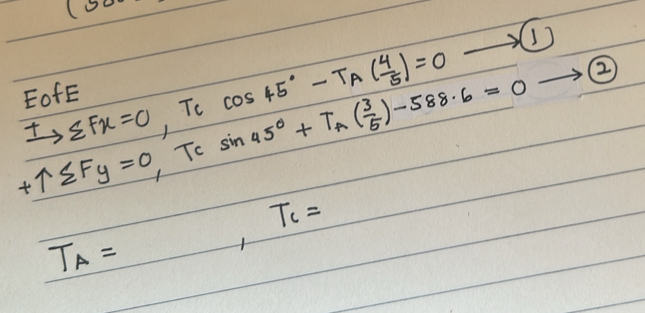 (588
EofE
+→ ΣFx=0, Tc cos 45° - TA (4/5) = 0 → ①
+↑ ΣFy=0, Tc sin 45° + TA (3/5) - 588.6 = 0 → ②
TA = , Tc =